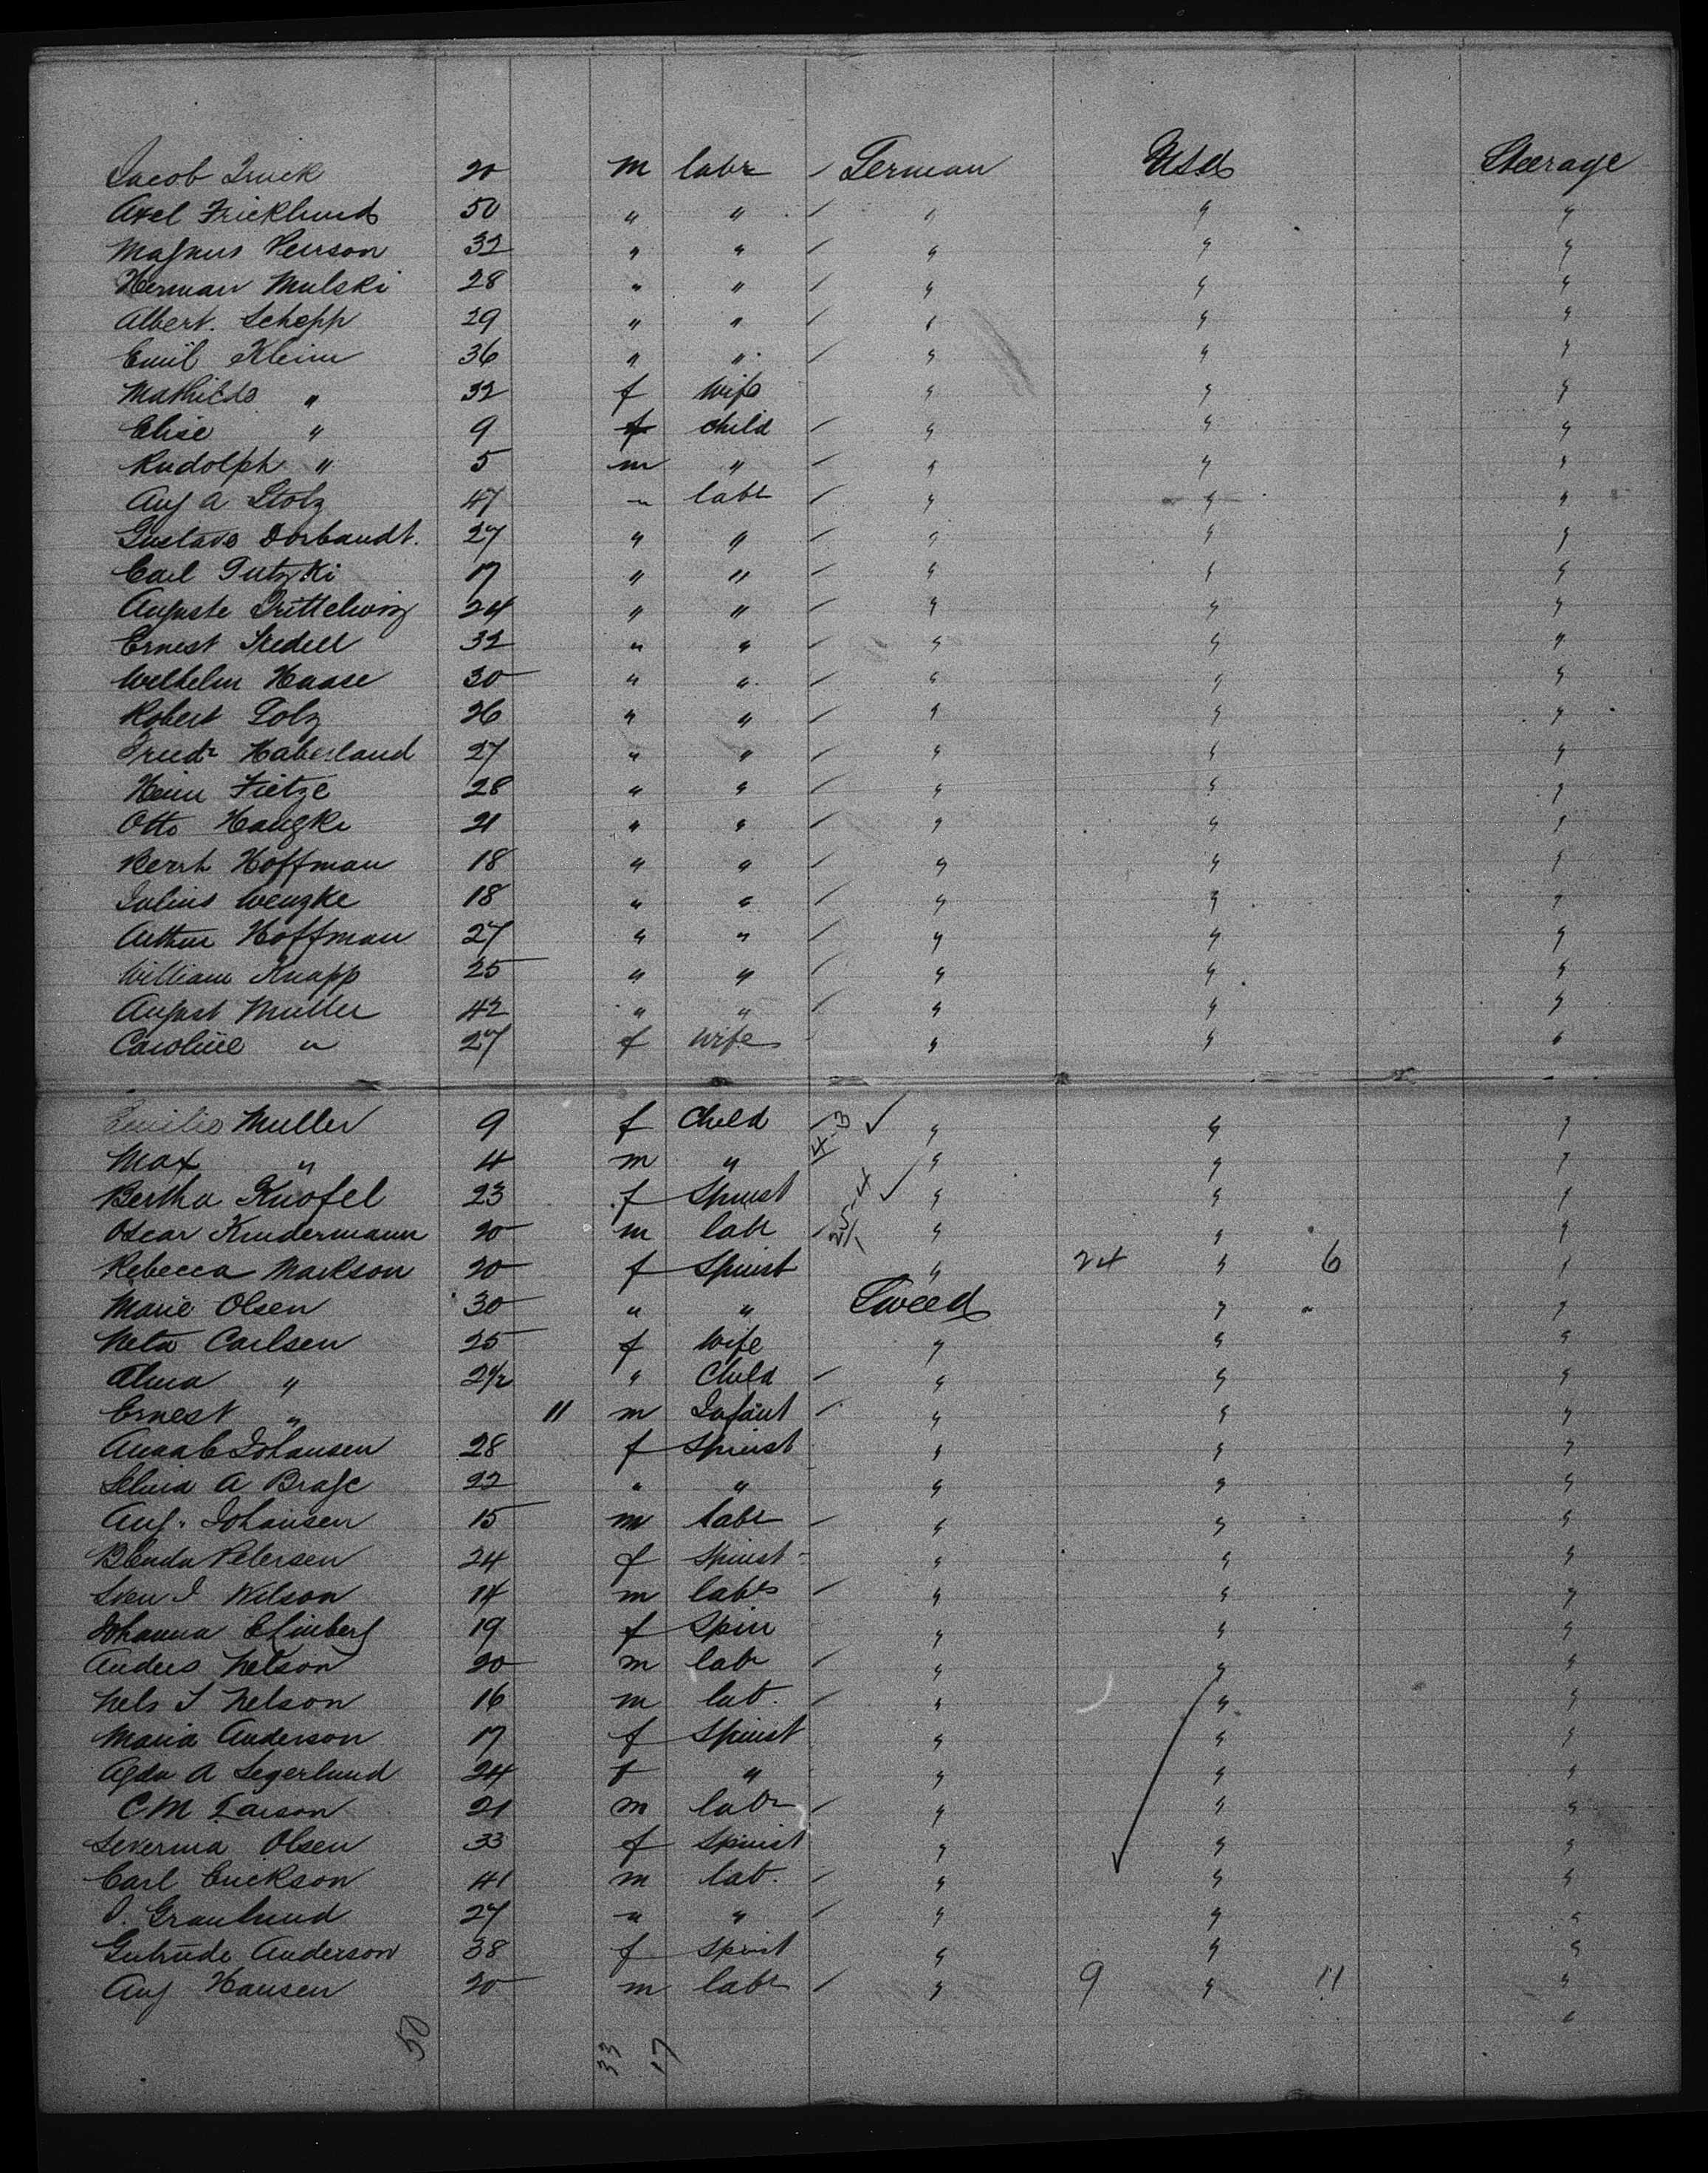 Jacob Quick 20 m labr / German USA Steerage
Axel Fricklund 50 " " / " " "
Magnus Peirson 32 " " / " " "
Herman Mulski 28 " " / " " "
Albert. Schepp 29 " " / " " "
Emil Kleim 36 " " / " " "
Mathilde " 32 f Wife " " "
Elise " 9 f child / " " "
Rudolph " 5 m " / " " "
Aug A Stolz 47 " labr / " " "
Gustave Dorbandt. 27 " " / " " "
Carl Putzki 17 " " / " " "
Auguste 24 " " / " " "
Ernest 32 " " / " " "
Wilhelm Haase 30 " " / " " "
Robert Polz 26 " " / " " "
Friedr Haberland 27 " " / " " "
Heinr Fietze 28 " " / " " "
Otto Hanzke 21 " " / " " "
Bernh Hoffman 18 " " / " " "
Julius Wenzke 18 " " / " " "
Arthur Hoffman 27 " " / " " "
William Knapp 25 " " / " " "
August Muller 42 " " / " " "
Caroline " 27 f Wife " " "
Emilie Muller 9 f Child / 4-3 ✓ " " "
Max " 4 m " / " " "
Bertha Knofel 23 f Spinst ✓ " " "
Oscar Kindermann 20 m labr / " " "
Rebecca Markson 20 f Spinst " 24 " 6 "
Marie Olsen 30 " " Sweed " "
Neta Carlsen 25 f Wife " " "
Alma " 2½ " Child / " " "
Ernest " 11 m Infant / " " "
Anna C Johansen 28 f Spinst " " "
Selma A Brage 22 " " " " "
Aug. Johansen 15 m labr / " " "
Blenda Petersen 24 f Spinst " " "
Sven J Nilson 14 m labr / " " "
Johanna 19 f Spin " " "
Anders Nelson 20 m labr / " " "
Nels J Nelson 16 m lab. / " " "
Maria Anderson 17 f Spinst " " "
Agda A Segerlund 24 f " " " "
C M Larson 21 m labr / " " "
Severina Olsen 33 f Spinist " " "
Carl Erickson 41 m lab. / " " "
J. Granlund 27 " " / " " "
Gertrude Anderson 38 f Spinst " " "
Aug Hansen 20 m labr / " 9 " 11 "
50 33 17